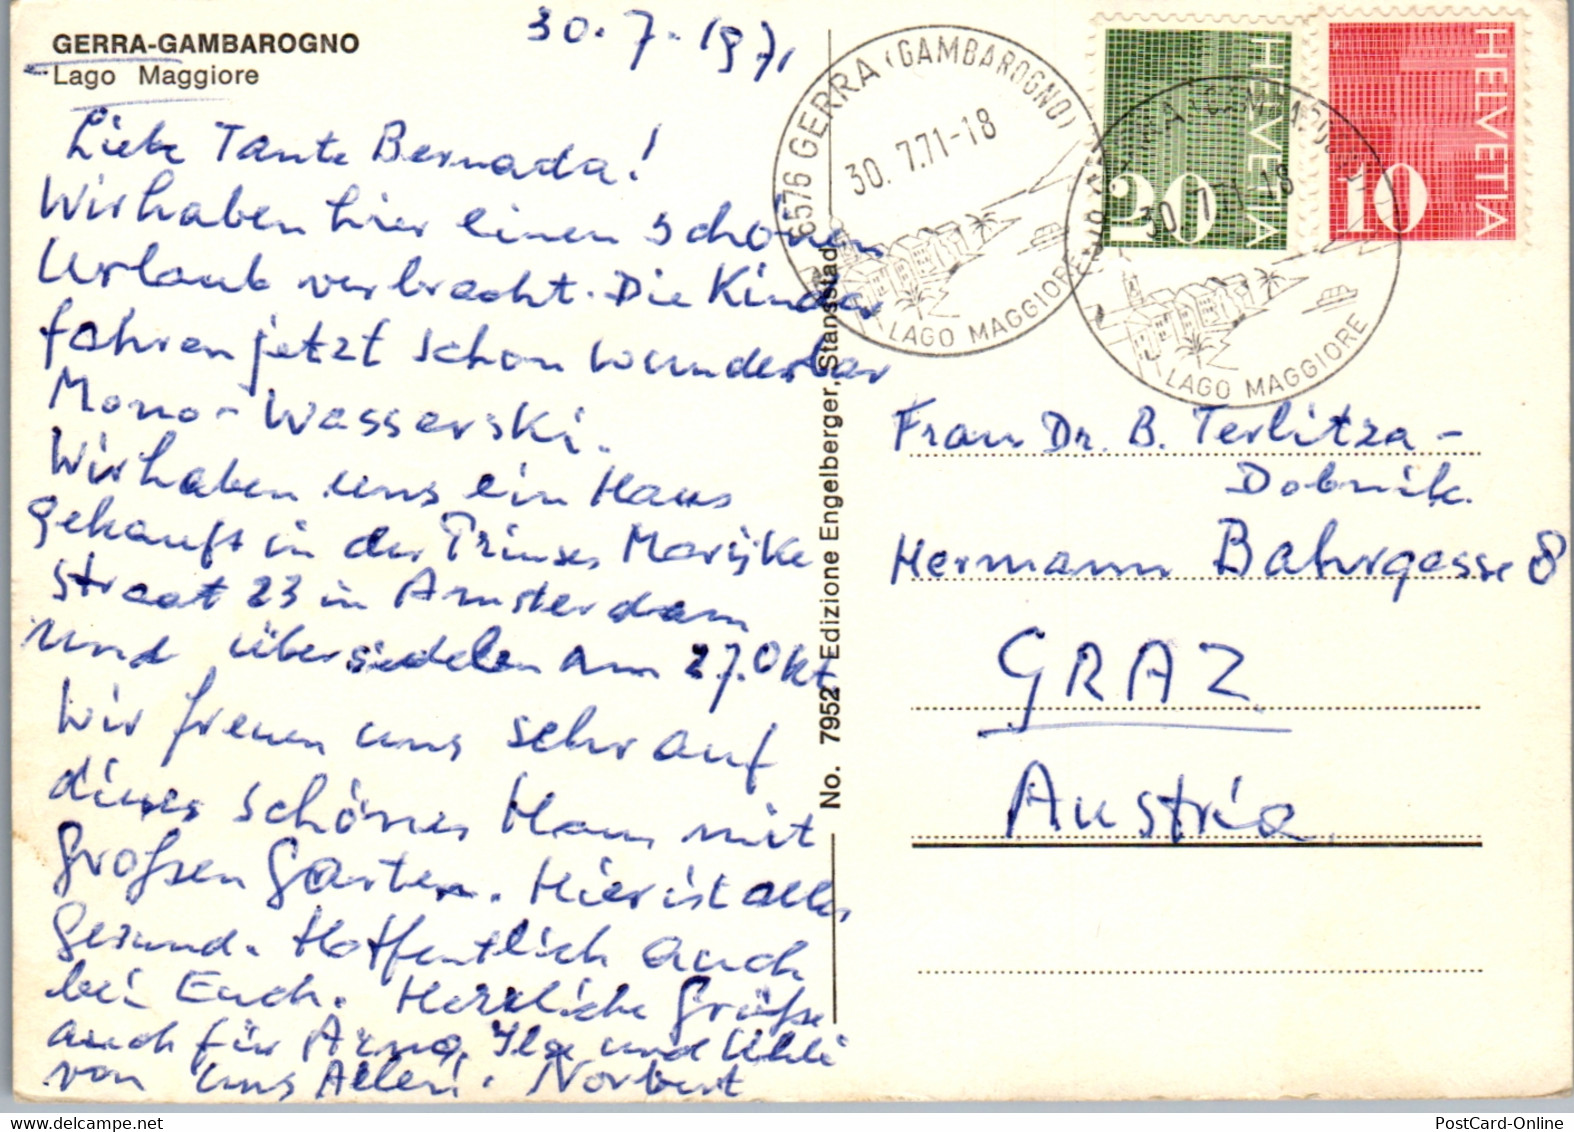 GERRA-GAMBAROGNO
Lago Maggiore
30.7.1971
Liebe Tante Bernada!
Wir haben hier einen schönen
Urlaub verbracht. Die Kinder
fahren jetzt schon wunderbar
Mono-Wasserski.
Wir haben uns ein Haus
gekauft in der Prinses Marijke
straat 23 in Amsterdam
und übersiedeln am 27.Okt
Wir freuen uns sehr auf
dieses schönes Haus mit
großen Garten. Hier ist alles
gesund. Hoffentlich auch
bei Euch. Herzliche Grüße
auch für Arno, Ilse und Uhli
von uns Allen. Norbert
No. 7952 Edizione Engelberger, Stansstad
6576 GERRA (GAMBAROGNO)
30.7.71-18
LAGO MAGGIORE
30.7.71-18
LAGO MAGGIORE
HELVETIA
20
HELVETIA
10
Frau Dr. B. Terlitza-
Dobnik.
Hermann Bahrgasse 8
GRAZ
Austria.
PostCard-Online